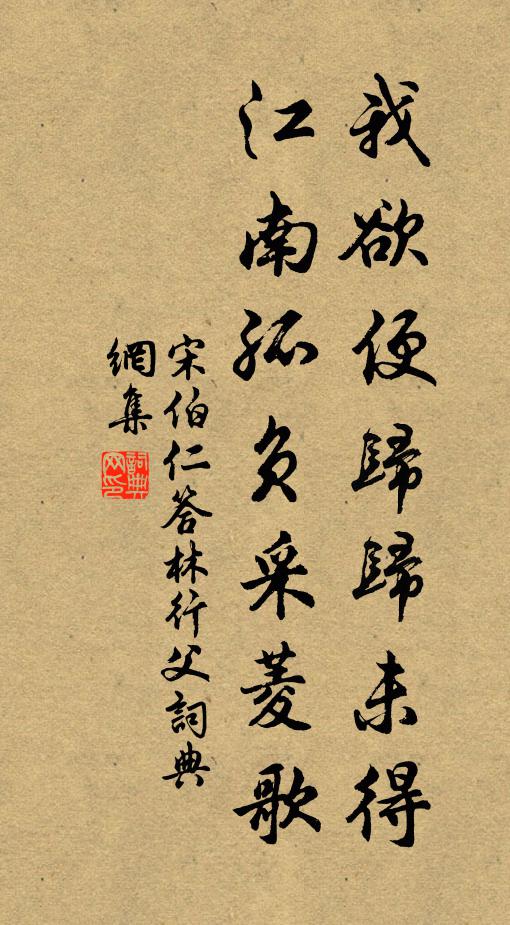 我欲便歸歸未得
江南孤負采菱歌
宋伯仁答林行父詞典
網集
詞典网印